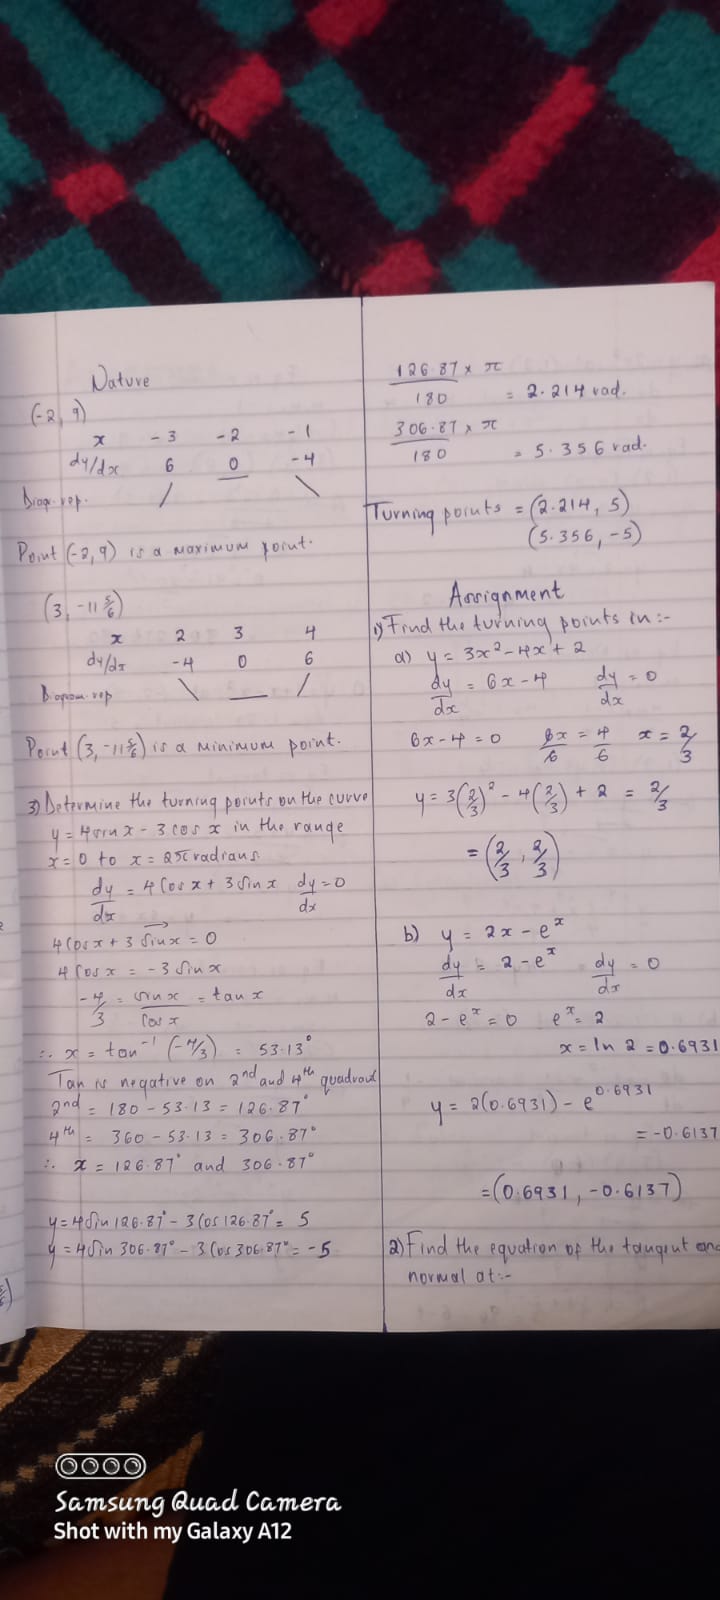 Nature
(-2, 9)
x -3 -2 -1
dy/dx 6 0 -4
Diag. rep. / \
Point (-2, 9) is a maximum point.
(3, -11 5/6)
x 2 3 4
dy/dx -4 0 6
Diagram rep \ __ /
Point (3, -11 5/6) is a minimum point.
3) Determine the turning points on the curve
y = 4 sin x - 3 cos x in the range
x = 0 to x = 2π radians
dy/dx = 4 Cos x + 3 Sin x dy/dx = 0
4 Cos x + 3 Sin x = 0
4 Cos x = -3 Sin x
-4/3 = sin x / Cos x = tan x
∴ x = tan⁻¹ (-4/3) = 53.13°
Tan is negative on 2nd and 4th quadrant
2nd = 180 - 53.13 = 126.87°
4th = 360 - 53.13 = 306.87°
∴ x = 126.87° and 306.87°
y = 4 Sin 126.87° - 3 Cos 126.87° = 5
y = 4 Sin 306.87° - 3 Cos 306.87° = -5
126.87 x π / 180 = 2.214 rad.
306.87 x π / 180 = 5.356 rad.
Turning points = (2.214, 5)
(5.356, -5)
Assignment
1) Find the turning points in :-
a) y = 3x² - 4x + 2
dy/dx = 6x - 4 dy/dx = 0
6x - 4 = 0 6x/6 = 4/6 x = 2/3
y = 3(2/3)² - 4(2/3) + 2 = 2/3
= (2/3, 2/3)
b) y = 2x - eˣ
dy/dx = 2 - eˣ dy/dx = 0
2 - eˣ = 0 eˣ = 2
x = ln 2 = 0.6931
y = 2(0.6931) - e^0.6931
= -0.6137
= (0.6931, -0.6137)
2) Find the equation of the tangent and
normal at :-
Samsung Quad Camera
Shot with my Galaxy A12